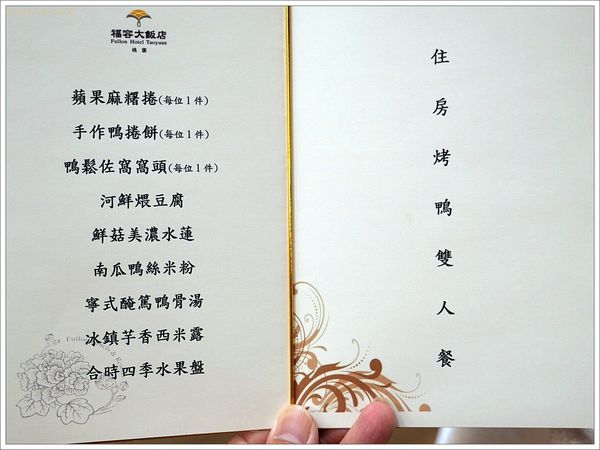 福容大飯店
Fullon Hotel Taoyuan
桃園
蘋果麻糬捲(每位1件)
手作鴨捲餅(每位1件)
鴨鬆佐窩窩頭(每位1件)
河鮮煨豆腐
鮮菇美濃水蓮
南瓜鴨絲米粉
寧式醃篤鴨骨湯
冰鎮芋香西米露
合時四季水果盤
住房烤鴨雙人餐